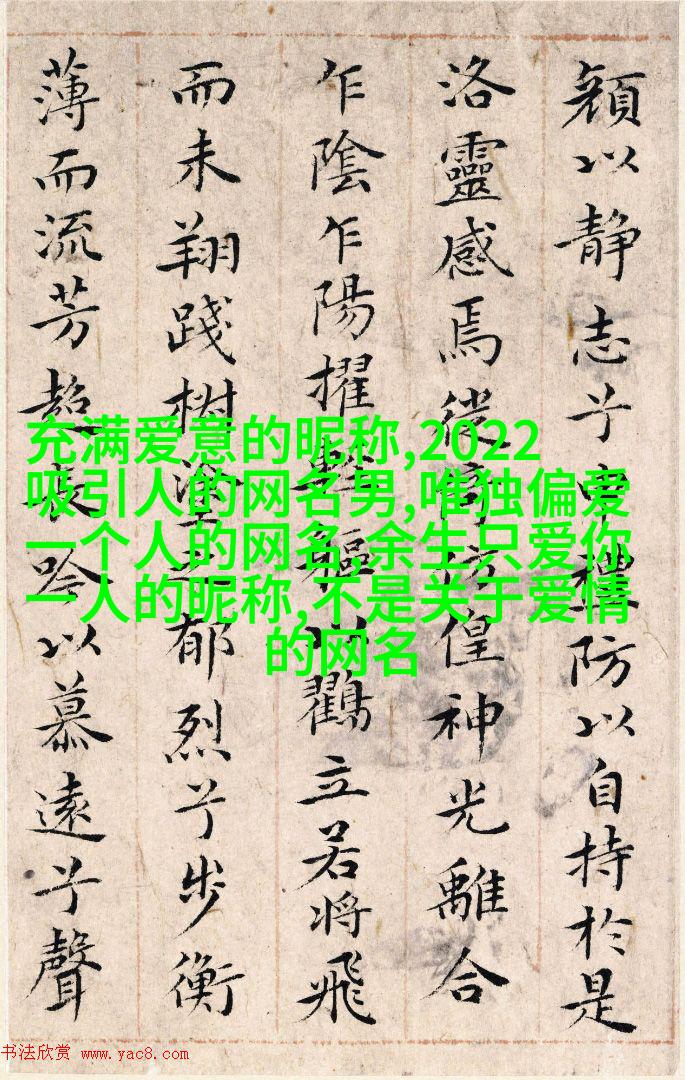 顏以静志兮申禮防以自持於是
洛靈感焉徙倚彷偟神光離合
乍陰乍陽擢輕軀以鸖立若將飛
而未翔踐椒塗之郁烈兮步衡
薄而流芳超長吟以慕遠兮聲
充满爱意的昵称,2022
吸引人的网名男,唯独偏爱
一个人的网名,余生只爱你
一人的昵称,不是关于爱情
的网名
书法欣赏 www.yac8.com